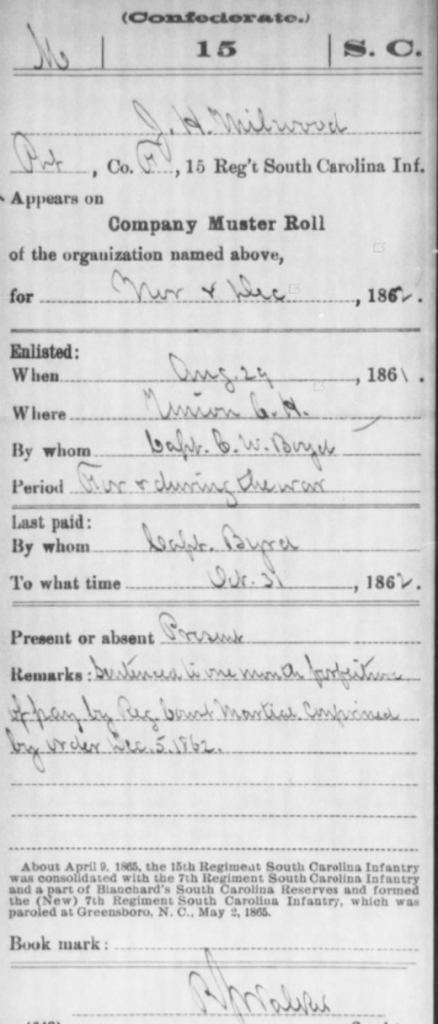 (Confederate.)
M | 15 | S. C.
J. H. Milwood
Pvt, Co. F, 15 Reg't South Carolina Inf.
Appears on
Company Muster Roll
of the organization named above,
for Nov & Dec, 1862.
Enlisted:
When Aug. 29, 1861.
Where Union C. H.
By whom Capt. C. W. Boyd
Period For & during the war
Last paid:
By whom Capt. Byrd
To what time Oct. 31, 1862.
Present or absent Present
Remarks: Sentenced to one month forfeiture
of pay by Reg. Court Martial Confirmed
by order Dec. 5, 1862.
About April 9, 1865, the 15th Regiment South Carolina Infantry
was consolidated with the 7th Regiment South Carolina Infantry
and a part of Blanchard's South Carolina Reserves and formed
the (New) 7th Regiment South Carolina Infantry, which was
paroled at Greensboro, N. C., May 2, 1865.
Book mark:
Walker